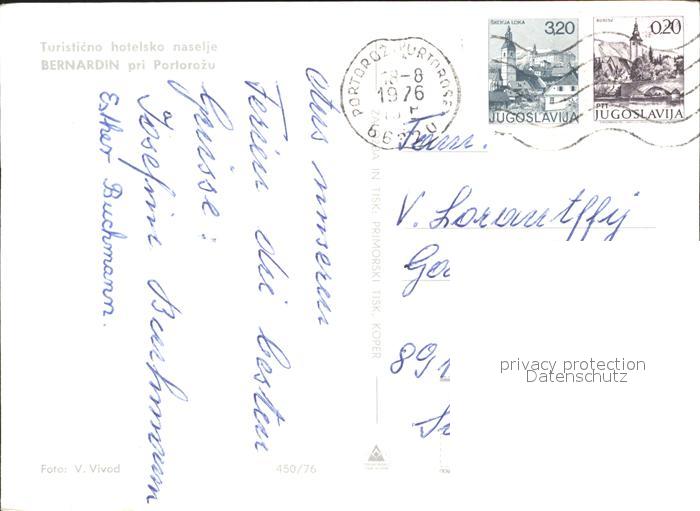 Turistično hotelsko naselje
BERNARDIN pri Portorožu
Aus unseren
Ferien die besten
Grüsse:
Josefine Buchmann
Esther Buchmann.
Foto: V. Vivod
450/76
IN TISK. PRIMORSKI TISK, KOPER
PORTOROŽ PORTOROSE
18-8
1976
ŠKOFJA LOKA
3,20
JUGOSLAVIJA
0,20
PTT
JUGOSLAVIJA
Fam.
V. Lorantffy
891
privacy protection
Datenschutz